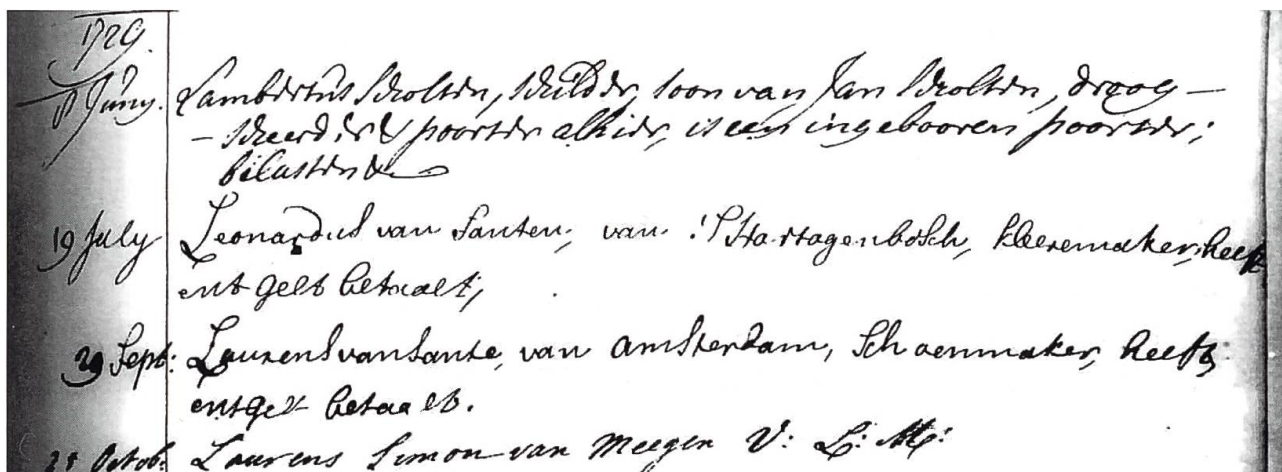 1729.
Juny. Lambertus Scholten, Schilder, soon van Jan Scholten, droog-
- scheerder & poorter alhier, is een ingebooren poorter;
19 July Leonardus van Santen, van 'S Hartogenbosch, kleremaker, heeft
ent gelt betaalt,
29 Sept: Laurens van Sante, van Amsterdam, Schoenmaker, heeft
entgelt betaalt.
Octob: Laurens Simon van Meegen V: L: M: